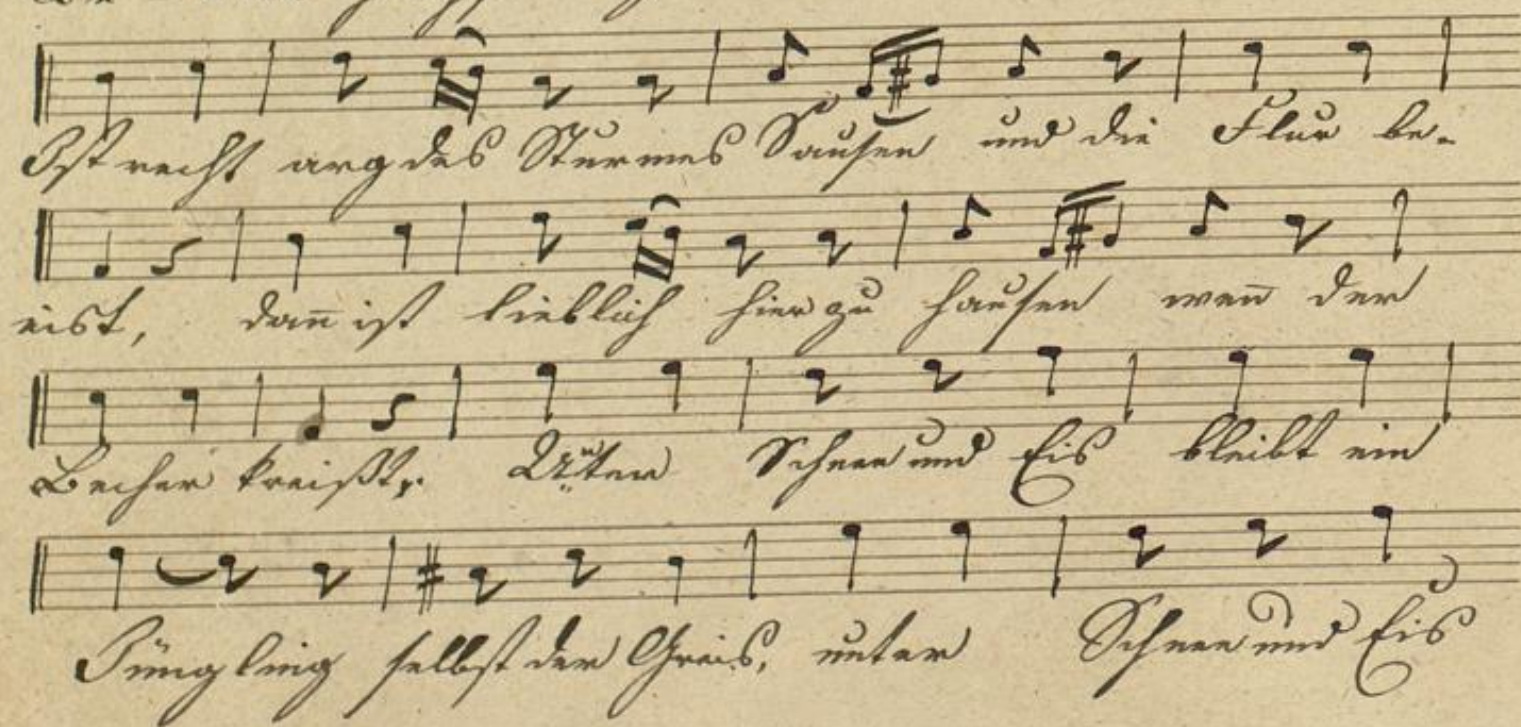 Ist recht arg des Sturmes Sausen und die Flur be-
eist, dañ ist lieblich hier zu hausen weñ der
Becher kreißt. Unter Schnee und Eis bleibt ein
Jüngling selbst der Greis, unter Schnee und Eis